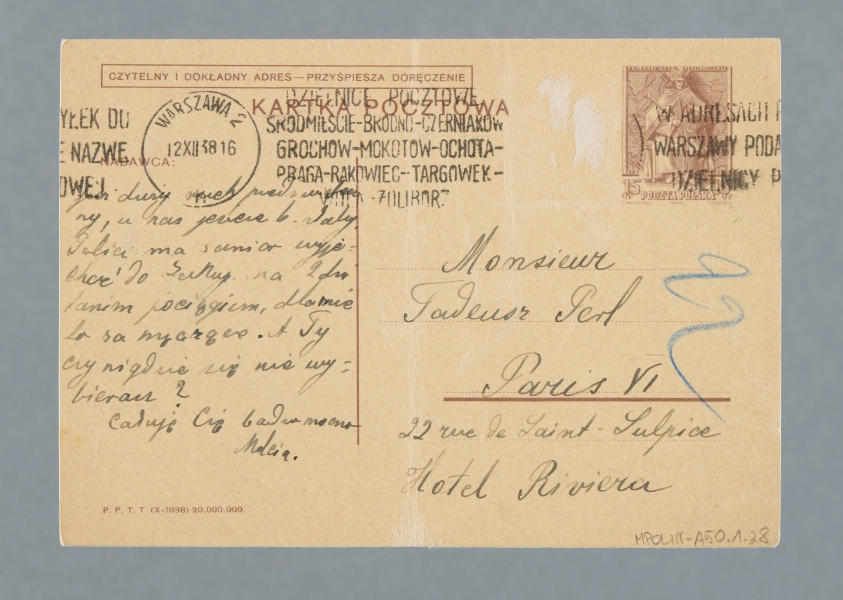 CZYTELNY I DOKŁADNY ADRES—PRZYŚPIESZA DORĘCZENIE
KARTKA POCZTOWA
NADAWCA:
WARSZAWA 2
12XII3816
YŁEK DO
NAZWĘ
OWEJ
DZIELNICE POCZTOWE
ŚRÓDMIEŚCIE-BRÓDNO-CZERNIAKÓW
GROCHÓW-MOKOTÓW-OCHOTA-
PRAGA-RAKOWIEC-TARGÓWEK-
WOLA-ŻOLIBORZ
W ADRESACH
WARSZAWY PODA
DZIELNICY P
15
POCZTA POLSKA
duży ruch
ny, u nas jeszcze b. mały,
ma zamiar wyje-
chać do Zakop. na 2 dni
tanim pociągiem, dla mnie
to za męczące. A Ty
czy nigdzie się nie wy-
bierasz?
Całuję Cię bardzo mocno
Monsieur
Tadeusz Perl
Paris VI
22 rue de Saint-Sulpice
Hotel Riviera
P. P. T. T. (X-1938) 20.000.000.
MPOLIN-A50.1.28